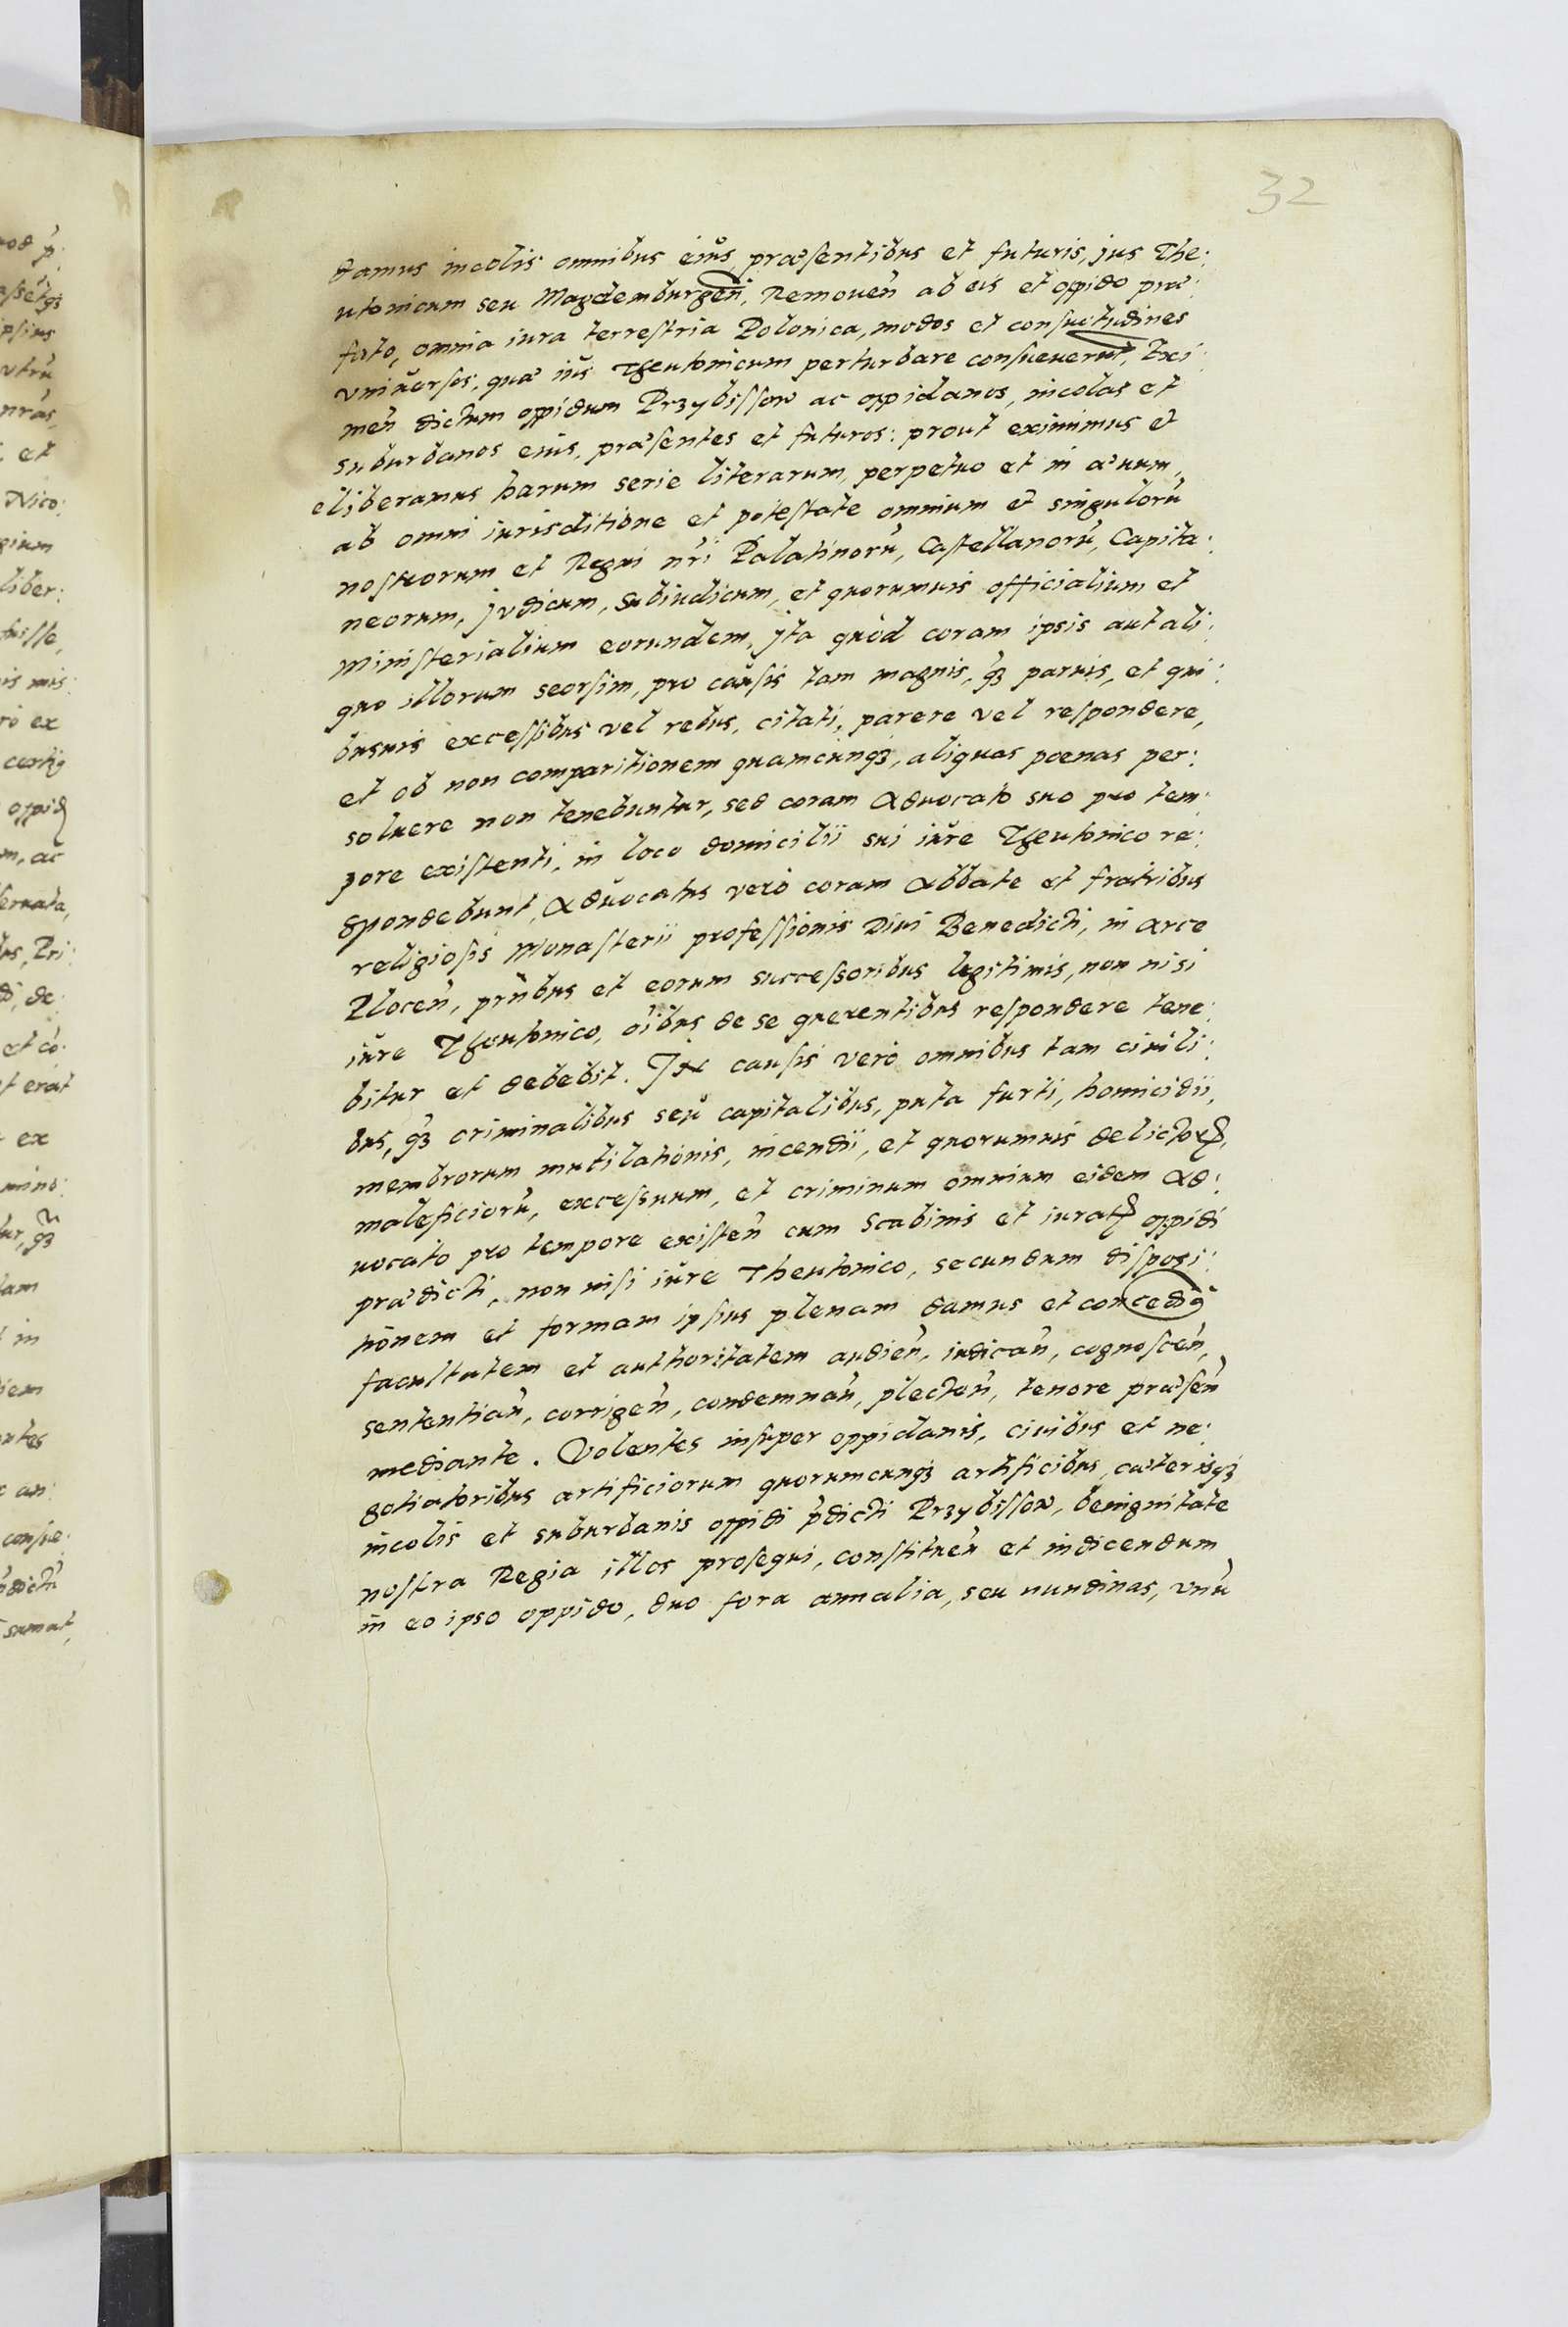 32
damus incolis omnibus eius, præsentibus et futuris, jus The:
utonicum seu Magdemburgeñ, Remoueñ ab eis et oppido præ:
fato, omnia iura terrestria Polonica, modos et consuetudines
vniuersos, quæ iùs Theutonicum perturbare consueuerũt, Exi:
meñ dictum oppidum Przybissow ac oppidanos, incolas et
suburbanos eius, præsentes et futuros: prout eximimus et
eliberamus harum serie literarum, perpetuo et in æuum,
ab omni iurisditione et potestate omnium et singulorũ
nostrorum et Regni nr̃i Palatinorũ, Castellanorũ, Capita:
neorum, Judicum, Subiudicum, et quorumuis officialium et
Ministerialium eorundem, Jta quòd coram ipsis aut ali:
quo illorum seorsim, pro causis tam magnis, qꝫ paruis, et qui:
busuis excessibus vel rebus, citati, parere vel respondere,
et ob non comparitionem quamcunqꝫ, aliquas poenas per:
soluere non tenebuntur, sed coram Aduocato suo pro tem:
pore existenti, in loco domicilii sui iùre Theutonico re:
spondebunt, Aduocatus verò coram Abbate et fratribus
religiosis Monasterii professionis Diui Benedicti, in arce
Ploceñ, pr̃ñbus et eorum successoribus legitimis, non nisi
iùre Theutonico, oĩbus de se querentibus respondere tene:
bitur et debebit. In causis verò omnibus tam ciuili:
bus, qꝫ criminalibus seu capitalibus, puta furti, homicidii,
membrorum mutilationis, incendii, et quorumuis delictoꝝ,
maleficiorũ, excessuum, et criminum omnium eidem Ad:
uocato pro tempore existeñ cum Scabinis et iuratꝭ oppidi
prædicti, non nisi iùre Theutonico, secundum disposi:
tionem et formam ipsius plenam damus et concedimꝰ
facultatem et authoritatem audieñ, iudicañ, cognosceñ,
sententiañ, corrigeñ, condemnañ, plecteñ, tenore præseñ
mediante. Volentes insuper oppidanis, ciuibus et ne:
gotiatoribus artificiorum quorumcunqꝫ artificibus, cæterisqꝫ
incolis et suburbanis oppidi p̃dicti Przybissow, benignitate
nostra Regia illos prosequi, constitueñ et indicendum
in eo ipso oppido, duo fora annalia, seu nundinas, vnũ